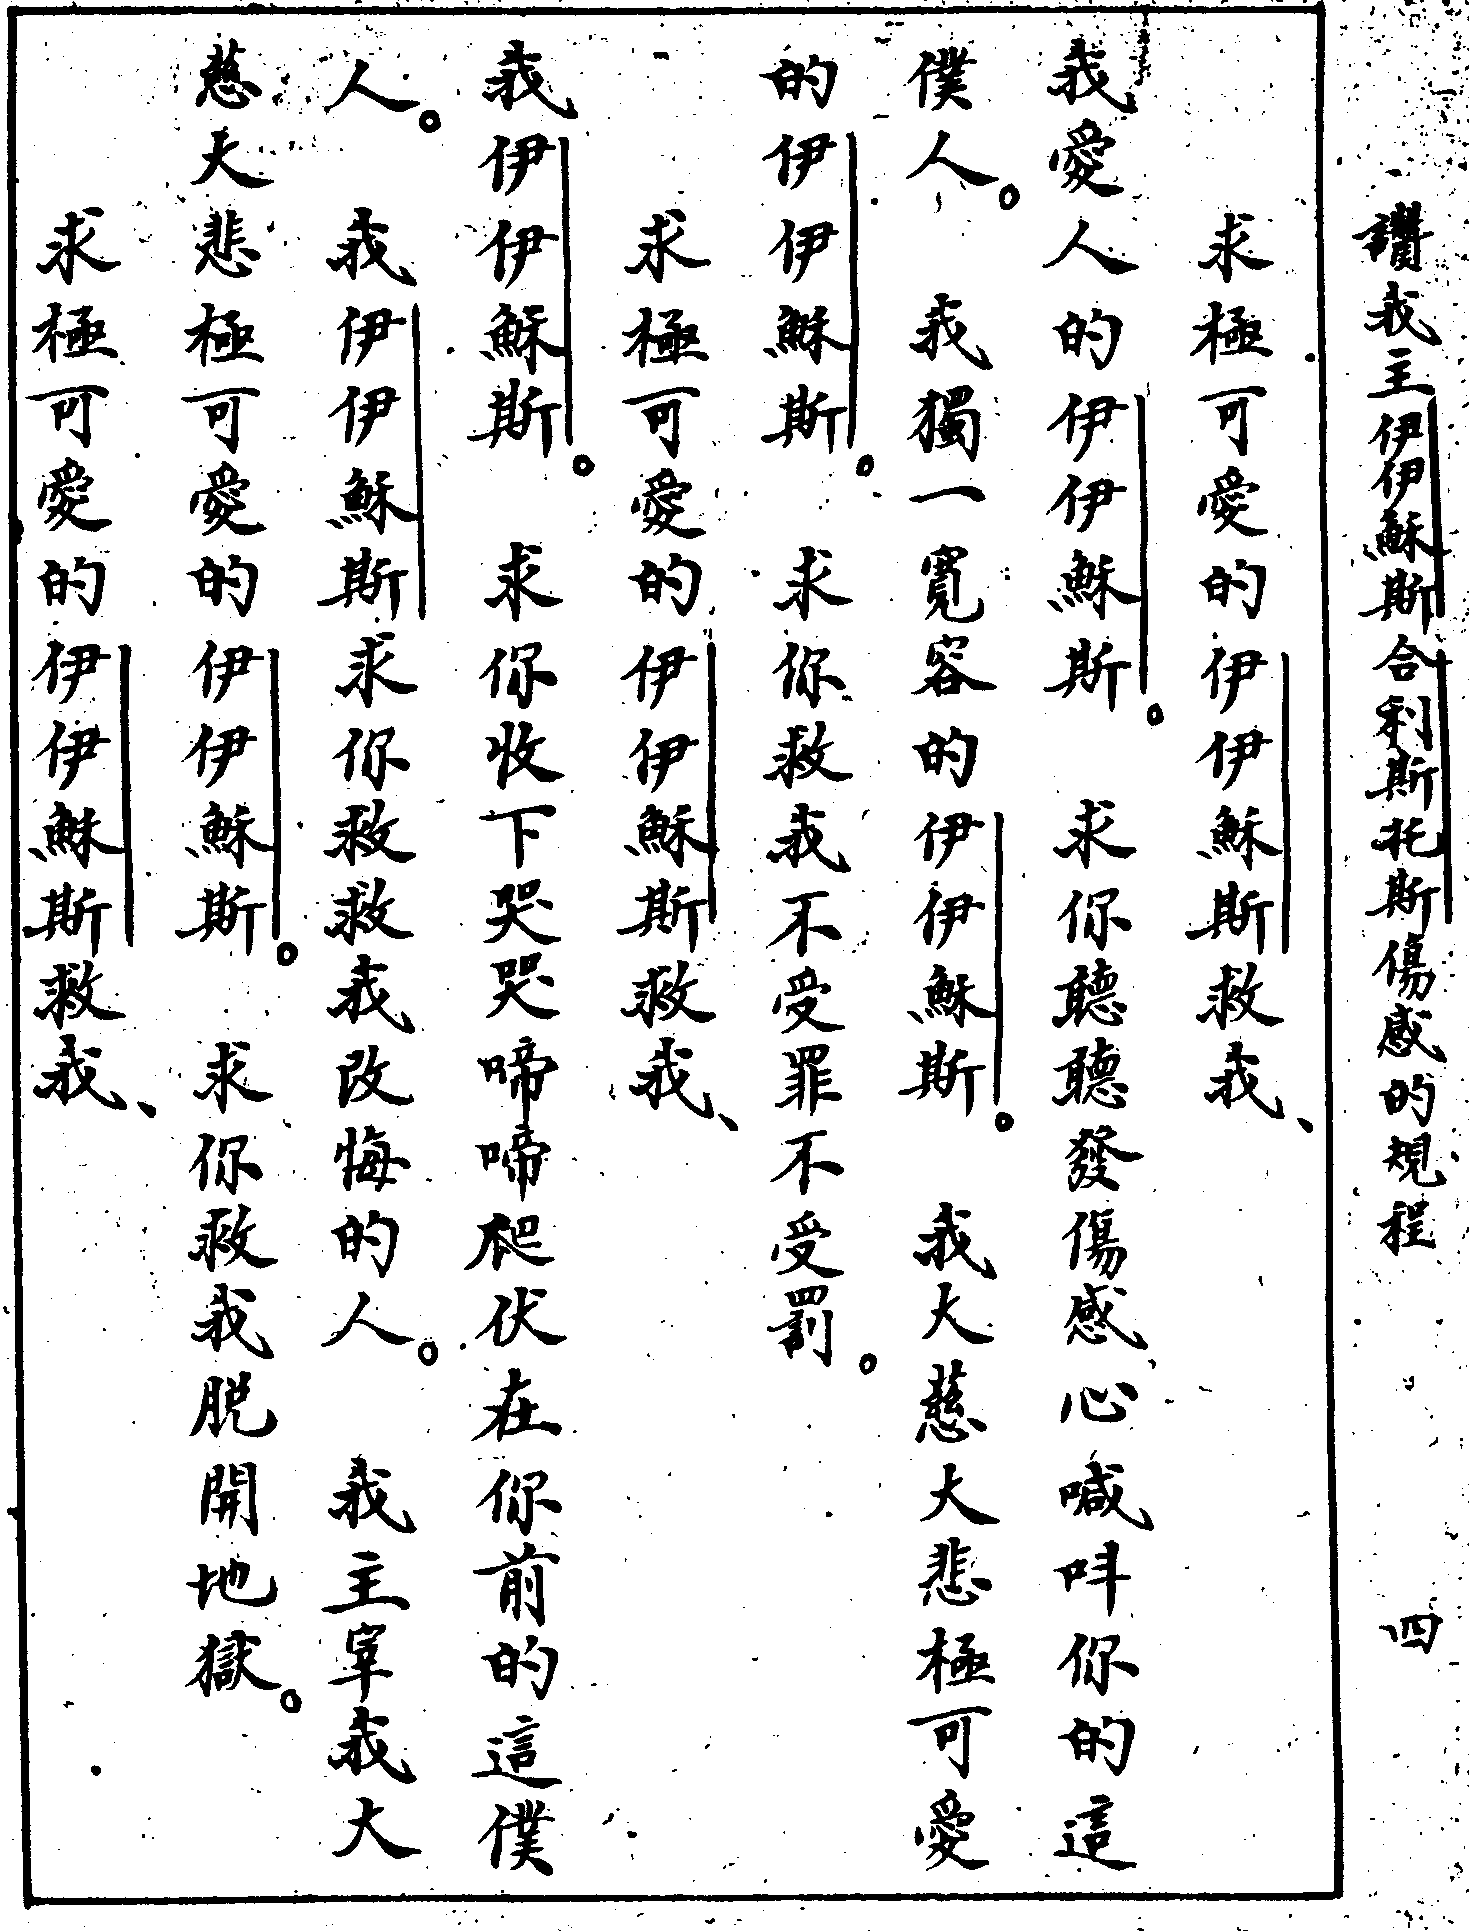 讚我主伊伊穌斯合利斯托斯傷感的規程 四
求極可愛的伊伊穌斯救我、
我愛人的伊伊穌斯。 求你聽聽發傷感心喊呌你的這
僕人。 我獨一寬容的伊伊穌斯。 我大慈大悲極可愛
的伊伊穌斯。 求你救我不受罪不受罰。
求極可愛的伊伊穌斯救我、
我伊伊穌斯。 求你收下哭哭啼啼爬伏在你前的這僕
人。 我伊伊穌斯求你救救我改悔的人。 我主宰我大
慈大悲極可愛的伊伊穌斯。 求你救我脫開地獄。
求極可愛的伊伊穌斯救我、